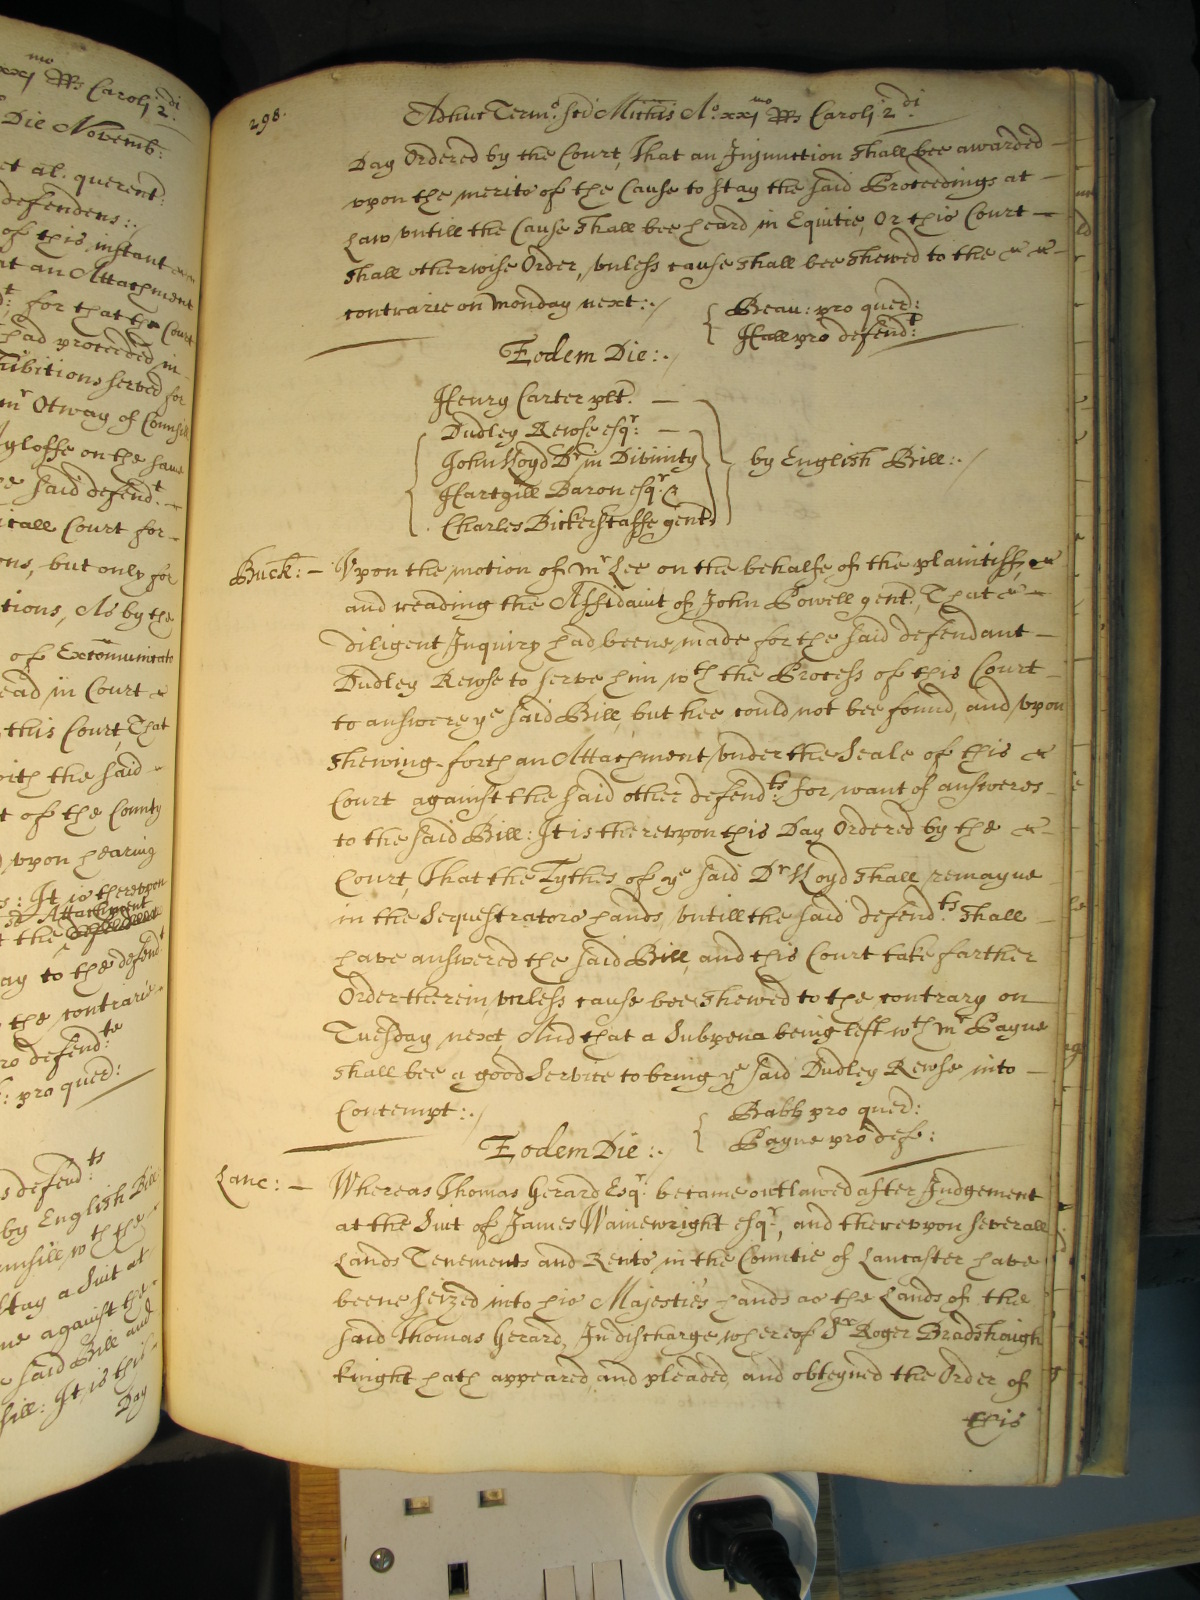 xxj mo Rs Caroli 2 di:
Die Novemb:
et al. querent:
defendens:
of this instant
at an Attachment
t: for that the Court
had proceeded in
hibitions served for
mr Otway of Counsill
gloffe on the same
e said defendt.
itall Court for
ons, but only for
tions, As by the
of Excomunicato
ead in Court
this Court, That
with the said
t of the County
upon hearing
s: It is thereupon
sd Attachment
t the
ay to the defendt
the contrarie
ro defendte
: pro quer:
s defend:ts
by English Bill
unsill wth the
stay a Suit at
me against the
e said Bill and
sill: It is this
Day
298.
Adhuc Termo. Sci Michis Ao. xxj mo Rs Caroli 2 di:
Day Ordered by the Court, That an Injunction shall bee awarded
upon the merits of the Cause to stay the said Proceedings at
Law untill the Cause shall bee heard in Equitie, Or this Court
shall otherwise Order, unless cause shall bee shewed to the
contrarie on Monday next:./
Beau: pro quer:
Hall pro defend:t
Eodem Die:./
Henry Carter plt.
Dudley Rewse esqr:
John Lloyd Dr in Divinity
Hartgill Baron esqr. &
Charles Bickerstaffe gent.
by English Bill:./
Buck: – Vpon the motion of mr Lee on the behalfe of the plaintiff,
and reading the Affidavit of John Powell gent., That
diligent Inquiry had beene made for the said defendant
Dudley Rewse to serve him wth the Process of this Court
to answere ye said Bill, but hee could not bee found, and upon
shewing forth an Attachment under the Seale of this
Court against the said other defend:ts for want of answeres
to the said Bill: It is thereupon this Day Ordered by the
Court, That the Tythes of ye said Dr Lloyd shall remayne
in the Sequestrators hands, untill the said defend:ts shall
have answered the said Bill, and this Court take farther
Order therein, unless cause bee shewed to the contrary on
Tuesday next, And that a Subpena being left wth mr Payne
shall bee a good Service to bring ye said Dudley Rewse into
Contempt:./
Babb pro quer:
Payne pro def:
Eodem Die:.
Lanc: – Whereas Thomas Gerard Esqr. became outlawed after Judgement
at the Suit of James Wainewright esqr, and thereupon severall
Lands Tenements and Rents in the Countie of Lancaster have
beene seized into his Majesties hands as the Lands of the
said Thomas Gerard, In discharge whereof Sr Roger Bradshaigh
knight hath appeared, and pleaded, and obteyned the Order of
this